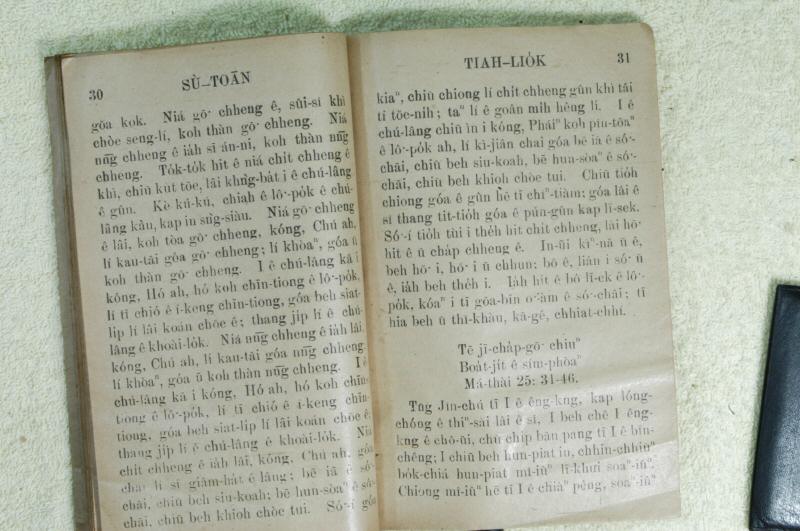 30
SÙ–TOĀN
gōa kok. Niá gō͘ chheng ê, sûi-sî khì
chòe seng-lí, koh thàn gō͘ chheng. Niá
nn̄g chheng ê iáh sī án-ni, koh thàn nn̄g
chheng. Tók-tók hit ê niá chit chheng ê
khì, chiū kut tōe, lâi khǹg-bát i ê chú-lâng
ê gûn. Kè kú-kú, chiah ê lô͘-pók ê chú-
lâng kàu, kap in sǹg-siàu. Niá gō͘ chheng
ê lâi, koh tòa gō͘ chheng, kóng, Chú ah,
lí kau-tāi góa gō͘ chheng; lí khòaⁿ, góa ū
koh thàn gō͘ chheng. I ê chú-lâng kā i
kóng, Hó ah, hó koh chīn-tiong ê lô͘-pók,
lí tī chió ê í-keng chīn-tiong, góa beh siat-
lip lí lâi koán chōe ê; thang jip lí ê chú-
lâng ê khoài-lók. Niá nn̄g chheng ê iáh lâi,
kóng, Chú ah, lí kau-tāi góa nn̄g chheng
lí khòaⁿ, góa ū koh thàn nn̄g chheng. I ê
chú-lâng kā i kóng, Hó ah, hó koh chīn-
tiong ê lô͘-pók, lí tī chió ê í-keng chīn-
tiong, góa beh siat-lip lí lâi koán chōe ê;
thang jip lí ê chú-lâng ê khoài-lók. Niá
chit chheng ê iáh lâi, kóng, Chú ah, góa
chai lí sī giâm-hat ê lâng; bē iā ê só͘-
chāi, chiū beh siu-koah; bē hun-sòaⁿ ê só͘-
chāi, chiū beh khioh chòe tui. Só͘-í góa
TIAH–LIÓK
31
kiaⁿ, chiū chiong lí chit chheng gûn khì tâi
tī tōe-nih; taⁿ lí ê goân mih hêng lí. I ê
chú-lâng chiū ìn i kóng, Pháiⁿ koh pîn-tōaⁿ
ê lô͘-pók ah, lí kì-jiân chai góa bē iā ê só͘-
chāi, chiū beh siu-koah, bē hun-sòaⁿ ê só͘-
chāi, chiū beh khioh chòe tui. Chiū tióh
chiong góa ê gûn hē tī chîⁿ-tiàm; góa lâi ê
sî thang tit-tióh góa ê pún-gûn kap lī-sek.
Só͘-í tióh tùi i théh hit chit chheng, lâi hō͘
hit ê ū cháp chheng ê. In-ūi kìⁿ-nā ū ê,
beh hō͘ i, hō͘ i ū chhun; bô ê, liân i só͘ ū
ê, iáh beh théh i. Iáh hit ê bô lī-ek ê lô͘-
pók, kóaⁿ i tī gōa-bīn o͘-àm ê só͘-chāi; tī
hia beh ū thî-khàu, kā-gê, chhiat-chhí.
Tē jī-cháp-gō͘ chiuⁿ
Boát-jit ê sím-phòaⁿ
Má-thài 25: 31-46.
Tng Jîn-chú tī I ê êng-kng, kap lóng-
chóng ê thiⁿ-sài lâi ê sî, I beh chē I êng-
kng ê chō-ūi, chú chip bān pang tī I ê bīn-
chêng; I chiū beh hun-piat in, chhin-chhiūⁿ
bók-chiá hun-piat mî-iûⁿ lī-khui soaⁿ-iûⁿ.
Chiong mî-iûⁿ hē tī I ê chiàⁿ pêng, soaⁿ-iûⁿ